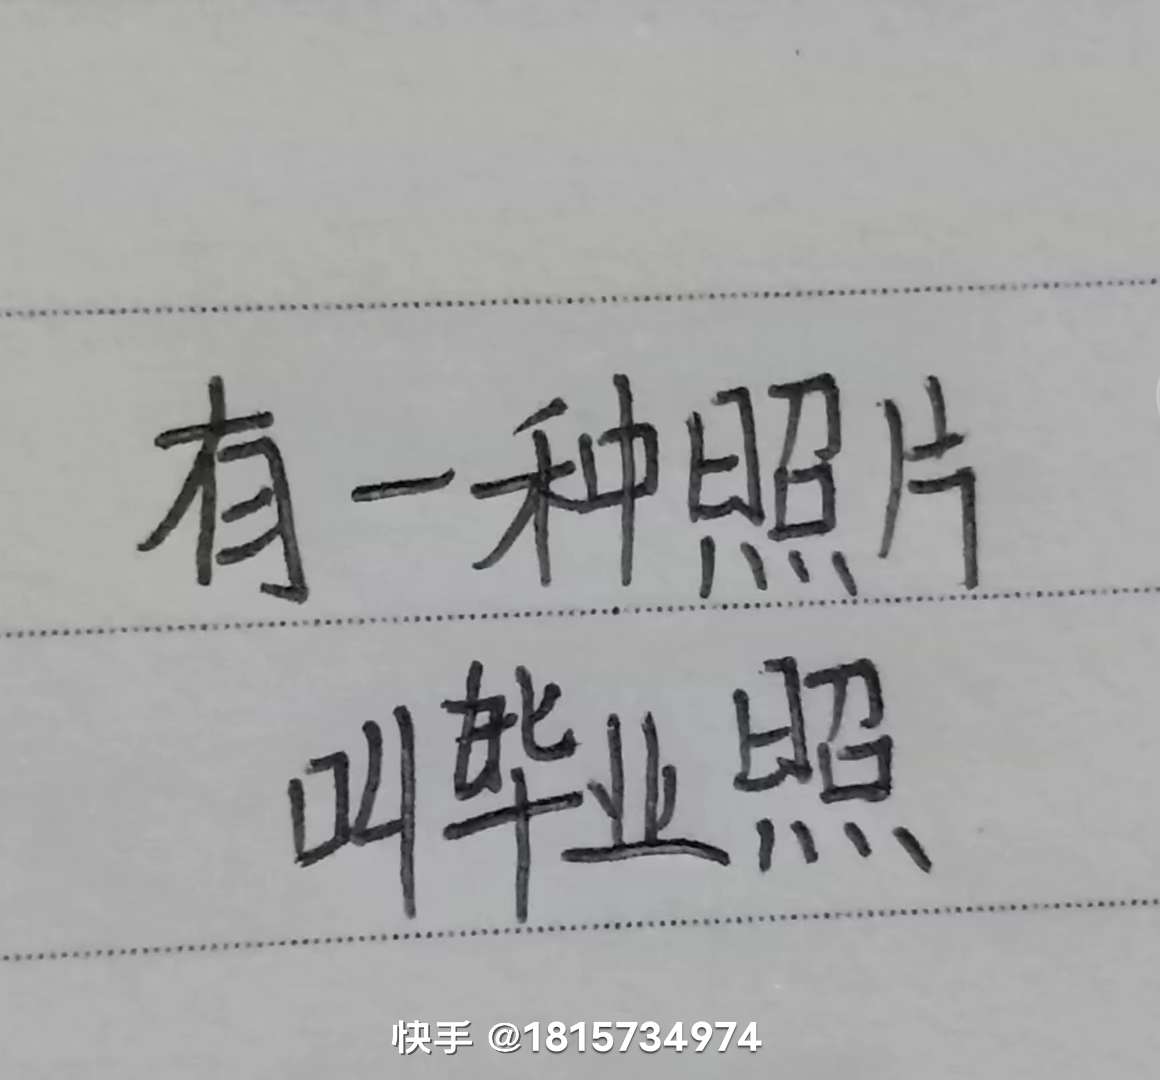 有一种照片
叫毕业照
快手 @1815734974